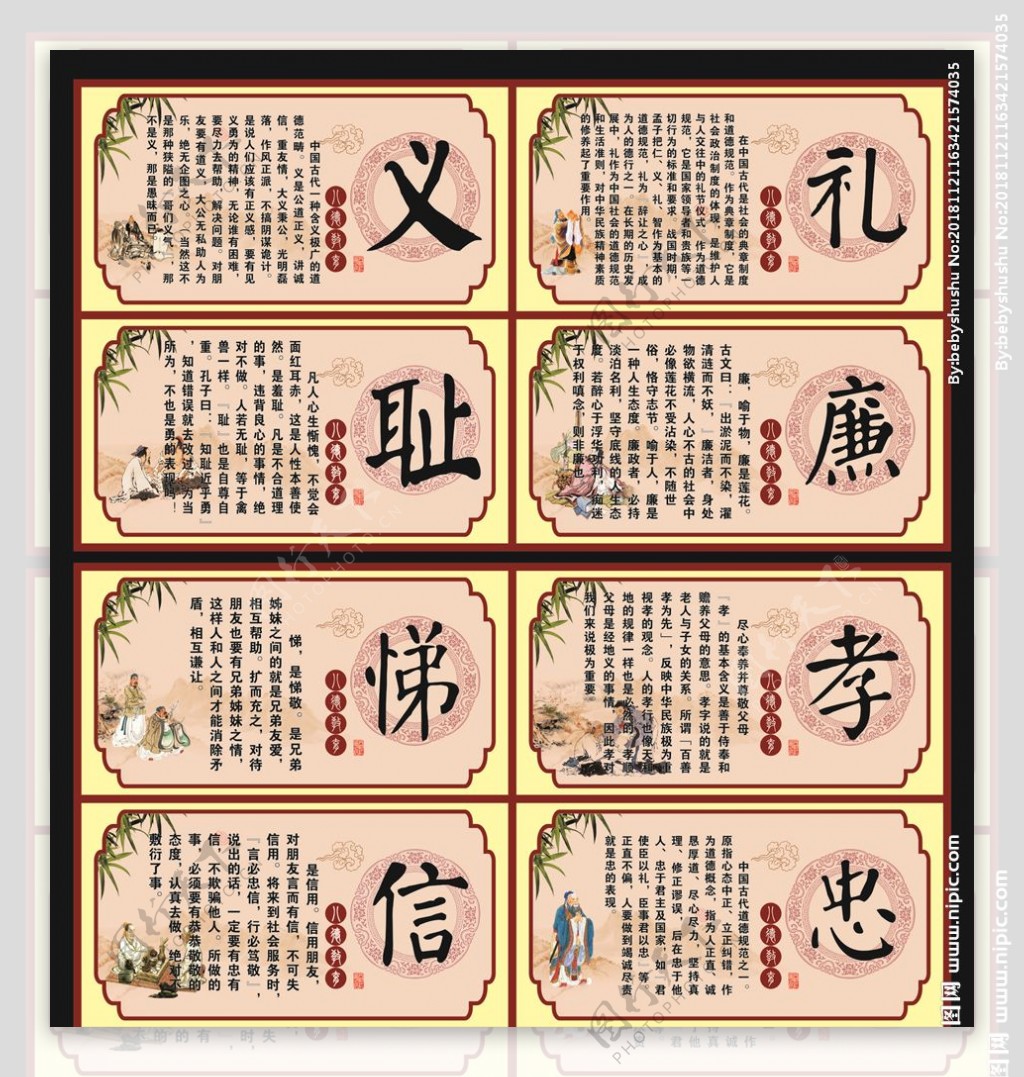 义
八德教育
中国古代一种含义极广的道
德范畴。义是公道正义，讲诚
信，重友情，大义秉公，光明磊
落，作风正派，不搞阴谋诡计。
是说人们应该有正义感，要有见
义勇为的精神，无论谁有困难，
要尽力去帮助，解决问题。对朋
友要有道义，大公无私助人为
乐，绝无企图之心。（当然这不
是那种狭隘的，哥们义气，那
不是义，那是愚昧而已）
礼
八德教育
在中国古代是社会的典章制度
和道德规范。作为典章制度，它是
社会政治制度的体现，是维护人
与人交往中的礼节仪式，作为道德
规范，它是国家领导者和贵族等一
切行为的标准和要求。战国时期，
孟子把仁、义、礼、智作为基本的
道德规范，礼为「辞让之心」，成
为人的德行之一，在长期的历史发
展中，礼作为中国社会的道德规范
和生活准则，对中华民族精神素质
的修养起了重要作用
耻
八德教育
凡人心生惭愧，不觉会
面红耳赤，这是人性本善使
然。是羞耻。凡是不合道理
的事，违背良心的事情，绝
对不做。人若无耻，等于禽
兽一样。『耻』也是自尊自
重。孔子曰：『知耻近乎勇』
，知道错误就去改过，为当
所为，不也是勇的表现吗！
廉
八德教育
廉，喻于物，廉是莲花。
古文曰：『出淤泥而不染，濯
清涟而不妖，』廉洁者，身处
物欲横流，人心不古的社会中
必像莲花不受沾染，不随世
俗，恪守志节。喻于人，廉是
一种人生态度。廉政者，必持
淡泊名利，坚守底线的人生态
度。若醉心于浮华功利，痴迷
于权利嗔念，则非廉也
悌
八德教育
悌，是悌敬。是兄弟
姊妹之间的就是兄弟友爱，
相互帮助。扩而充之，对待
朋友也要有兄弟姊妹之情，
这样人和人之间才能消除矛
盾，相互谦让。
孝
八德教育
尽心奉养并尊敬父母
『孝』的基本含义是善于侍奉和
赡养父母的意思。孝字说的就是
老人与子女的关系。所谓「百善
孝为先」，反映中华民族极为重
视孝的观念。人的孝行也像天和
地的规律一样也是必然的，孝顺
父母是经地义的事情，因此孝对
我们来说极为重要。
信
八德教育
是信用。信用朋友，
对朋友言而有信，不可失
信用。将来到社会服务时，
『言必忠信，行必笃敬』，
说出的话，一定要有忠有
信，不欺骗他人。所做的
事，必须要有恭恭敬敬的
态度，认真去做，绝对不
敷衍了事。
忠
八德教育
中国古代道德规范之一。
原指心态中正、立正纠错，作
为道德概念，指为人正直、诚
恳厚道、尽心尽力，坚持真
理、修正谬误，后在忠于他
人、忠于君主及国家，如『君
使臣以礼，臣事君以忠』等，
正直不偏，人要做到竭诚尽责
就是忠的表现。
By:bebyshushu No:20181121163421574035
图网 www.nipic.com